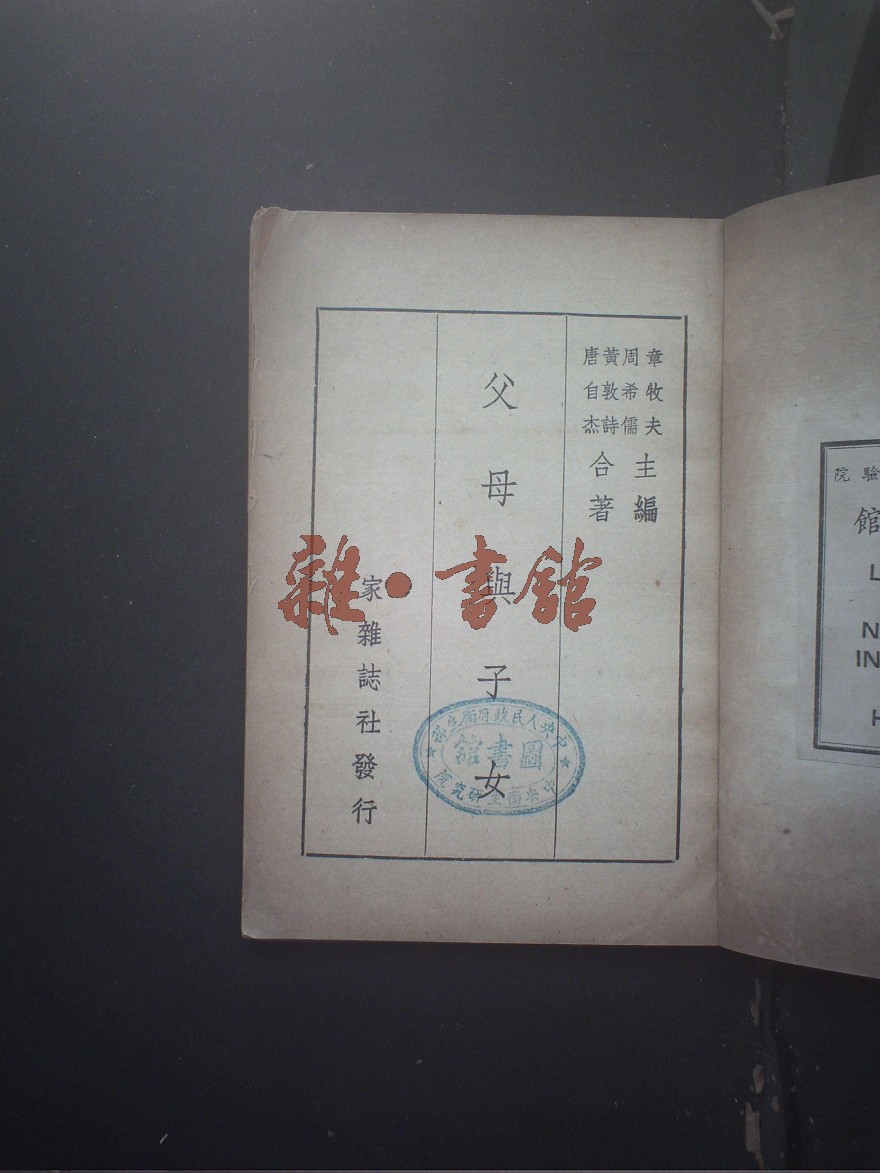 章牧夫
周希儒
主編
黃敦詩
唐自杰
合著
父母與子女
家雜誌社發行
中央人民政府衛生部
圖書館
中央衛生研究院
雜·書館
驗院
館
L
N
IN
H